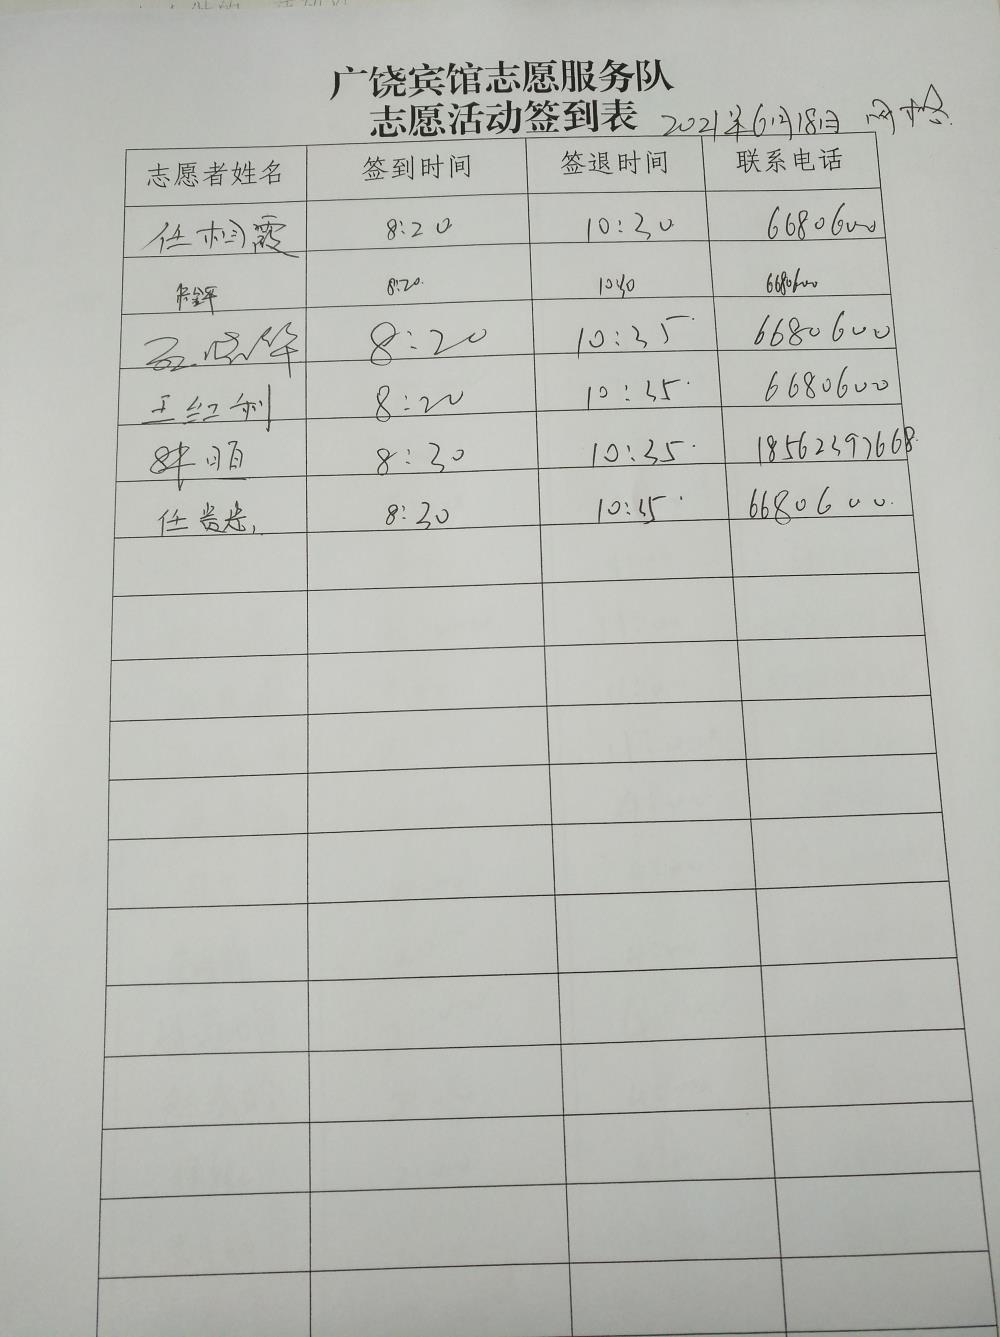 广饶宾馆志愿服务队
志愿活动签到表 2021年6月18日 网格
志愿者姓名 签到时间 签退时间 联系电话
任相霞 8:20 10:30 6680600
8:20. 10:40 6680600
8:20 10:35 6680600
王红利 8:20 10:35 6680600
8:30 10:35 18562397668
任贵忠 8:30 10:35 6680600